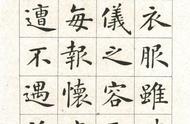 衣服雖
儀之容
每報懷
遭不遇